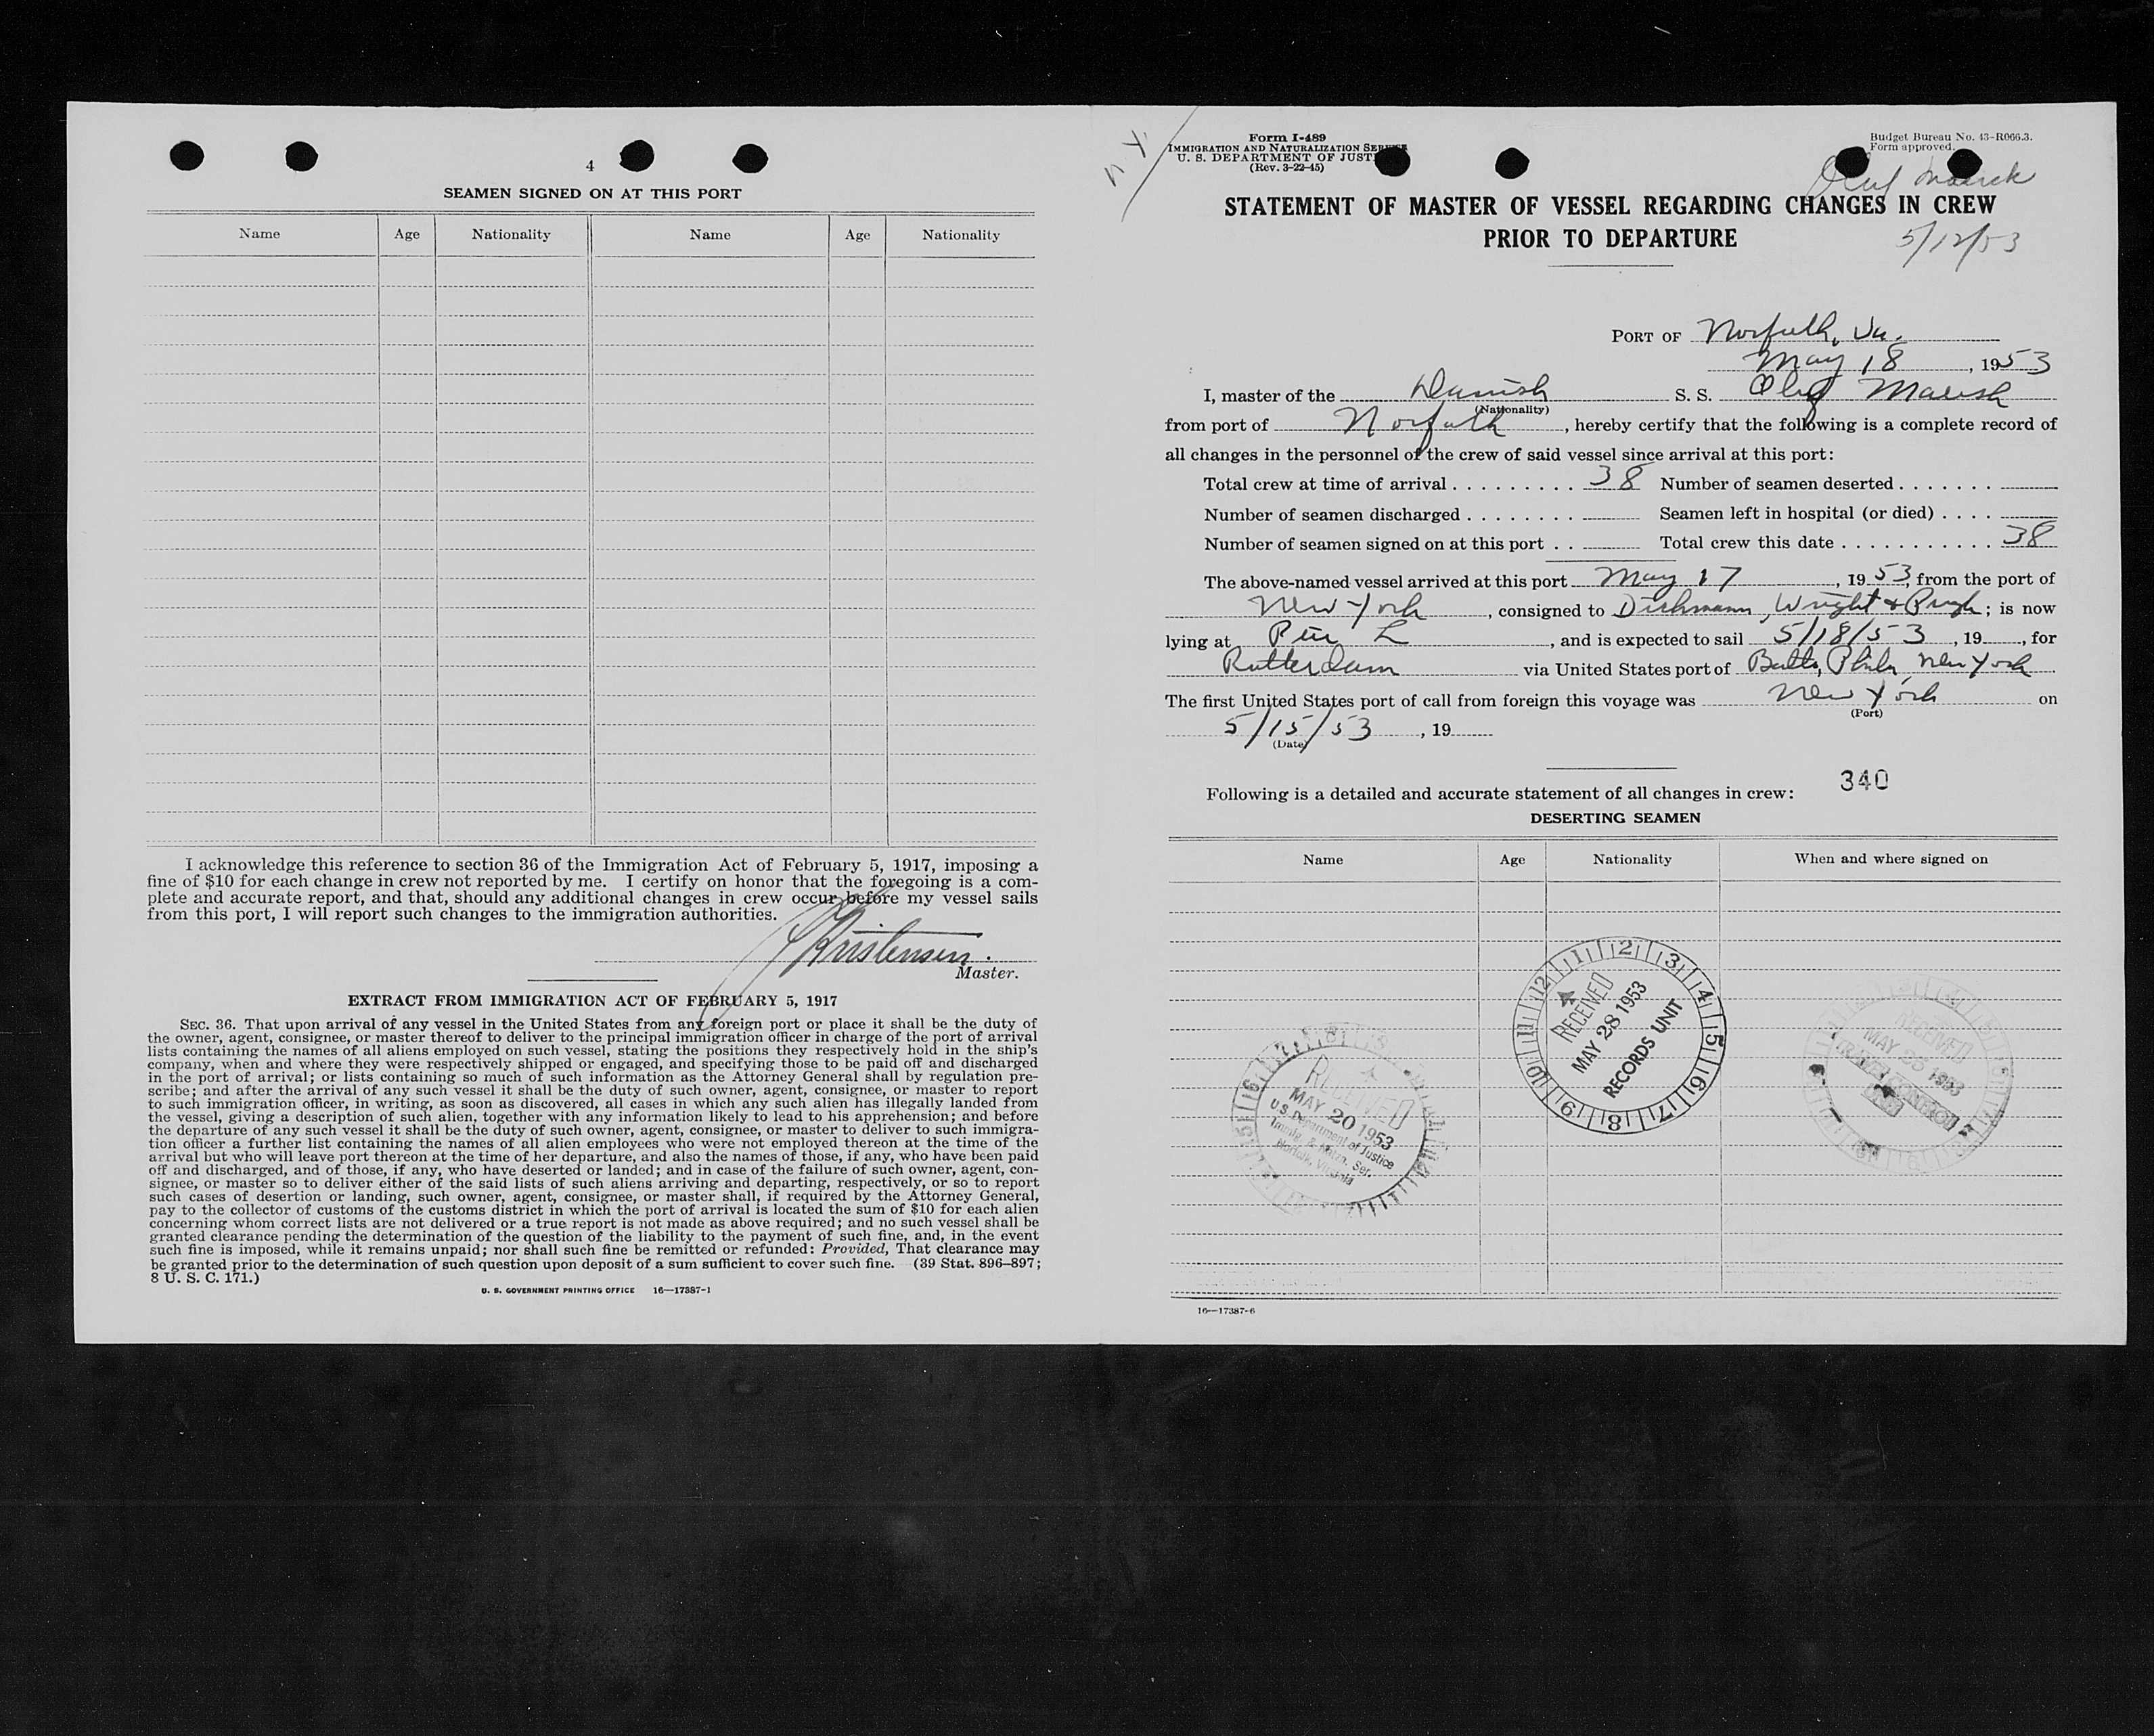 4
SEAMEN SIGNED ON AT THIS PORT
Name Age Nationality Name Age Nationality
I acknowledge this reference to section 36 of the Immigration Act of February 5, 1917, imposing a
fine of $10 for each change in crew not reported by me. I certify on honor that the foregoing is a com-
plete and accurate report, and that, should any additional changes in crew occur before my vessel sails
from this port, I will report such changes to the immigration authorities.
Kristensen.
Master.
EXTRACT FROM IMMIGRATION ACT OF FEBRUARY 5, 1917
SEC. 36. That upon arrival of any vessel in the United States from any foreign port or place it shall be the duty of
the owner, agent, consignee, or master thereof to deliver to the principal immigration officer in charge of the port of arrival
lists containing the names of all aliens employed on such vessel, stating the positions they respectively hold in the ship's
company, when and where they were respectively shipped or engaged, and specifying those to be paid off and discharged
in the port of arrival; or lists containing so much of such information as the Attorney General shall by regulation pre-
scribe; and after the arrival of any such vessel it shall be the duty of such owner, agent, consignee, or master to report
to such immigration officer, in writing, as soon as discovered, all cases in which any such alien has illegally landed from
the vessel, giving a description of such alien, together with any information likely to lead to his apprehension; and before
the departure of any such vessel it shall be the duty of such owner, agent, consignee, or master to deliver to such immigra-
tion officer a further list containing the names of all alien employees who were not employed thereon at the time of the
arrival but who will leave port thereon at the time of her departure, and also the names of those, if any, who have been paid
off and discharged, and of those, if any, who have deserted or landed; and in case of the failure of such owner, agent, con-
signee, or master so to deliver either of the said lists of such aliens arriving and departing, respectively, or so to report
such cases of desertion or landing, such owner, agent, consignee, or master shall, if required by the Attorney General,
pay to the collector of customs of the customs district in which the port of arrival is located the sum of $10 for each alien
concerning whom correct lists are not delivered or a true report is not made as above required; and no such vessel shall be
granted clearance pending the determination of the question of the liability to the payment of such fine, and, in the event
such fine is imposed, while it remains unpaid; nor shall such fine be remitted or refunded: Provided, That clearance may
be granted prior to the determination of such question upon deposit of a sum sufficient to cover such fine. (39 Stat. 896–897;
8 U. S. C. 171.)
U. S. GOVERNMENT PRINTING OFFICE 16—17387-1
N Y
Form I-489
IMMIGRATION AND NATURALIZATION SERVICE
U. S. DEPARTMENT OF JUSTICE
(Rev. 3-22-45)
Budget Bureau No. 43-R066.3.
Form approved.
Oluf Maersk
STATEMENT OF MASTER OF VESSEL REGARDING CHANGES IN CREW
PRIOR TO DEPARTURE
5/12/53
PORT OF Norfolk, Va.
May 18, 1953
I, master of the Danish S. S. Oluf Maersk
(Nationality)
from port of Norfolk, hereby certify that the following is a complete record of
all changes in the personnel of the crew of said vessel since arrival at this port:
Total crew at time of arrival 38 Number of seamen deserted
Number of seamen discharged Seamen left in hospital (or died)
Number of seamen signed on at this port Total crew this date 38
The above-named vessel arrived at this port May 17, 1953, from the port of
New York, consigned to Dichmann, Wright & Pugh; is now
lying at Pier L, and is expected to sail 5/18/53, 19, for
Rotterdam via United States port of Balto, Phila, New York
The first United States port of call from foreign this voyage was New York on
(Port)
5/15/53, 19
(Date)
340
Following is a detailed and accurate statement of all changes in crew:
DESERTING SEAMEN
Name Age Nationality When and where signed on
12 1 2 3 4 5 6 7 8 9 10 11
RECEIVED
MAY 28 1953
RECORDS UNIT
RECEIVED
MAY 20 1953
U.S. Department of Justice
Immig. & Natzn. Ser.
Norfolk, Virginia
RECEIVED
MAY 25 1953
16—17387-6